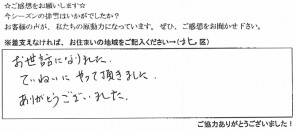 ☆ご感想をお願いします☆
今シーズンの排雪はいかがでしたか？
お客様の声が、私たちの原動力になっています。ぜひ、ご感想をお聞かせ下さい。
※差支えなければ、お住まいの地域をご記入ください→（北 区）
お世話になりました。
ていねいに やって頂きました。
ありがとうございました。
ご協力ありがとうございました！